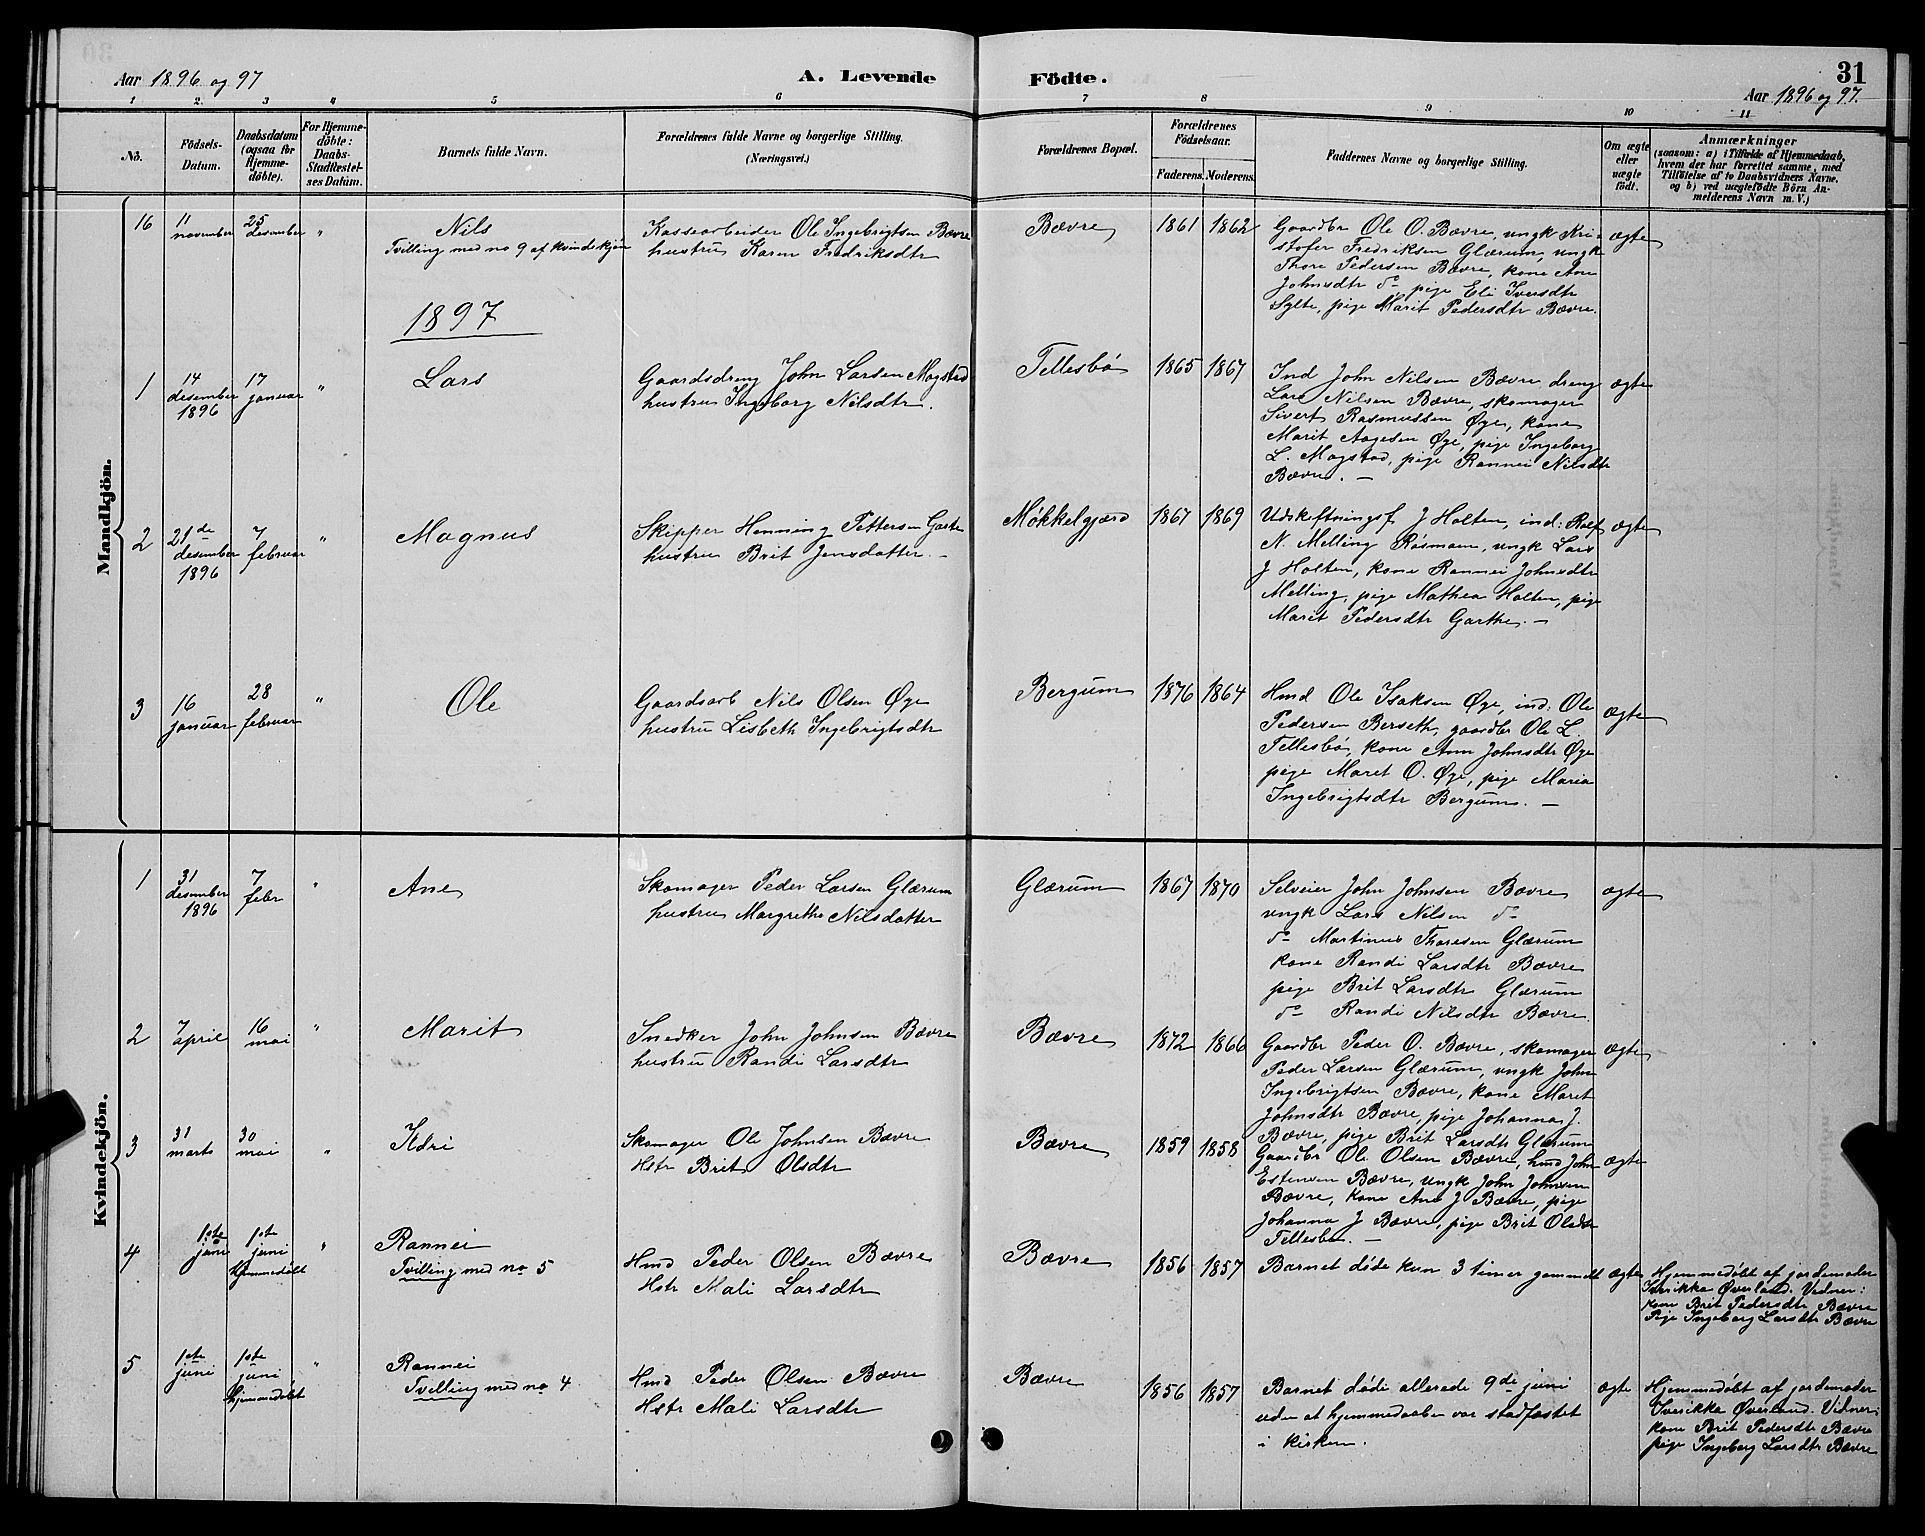 Aar 1896 og 97
A. Levende
Födte.
31
Aar 1896 og 97.
1 2. 3 4 5 6 7 8 9 10 11
No.
Födsels-
Datum.
Daabsdatum
(ogsaa for
Hjemme-
döbte).
For Hjemme-
döbte:
Daabs-
Stadfæstel-
ses Datum.
Barnets fulde Navn.
Forældrenes fulde Navne og borgerlige Stilling.
(Næringsvei.)
Forældrenes Bopæl.
Forældrenes
Födselsaar.
Faderens. Moderens.
Faddernes Navne og borgerlige Stilling.
Om ægte
eller
uægte
födt.
Anmærkninger
(saasom: a) i Tilfælde af Hjemmedaab,
hvem der har forrettet samme, med
Tilföielse af to Daabsvidners Navne.
og b) ved uægtefödte Börn An-
melderens Navn m. V.)
Mandkjön.
16
11
november
25
desember
"
Nils
Tvilling med no 9 af kvindekjøn
Kassearbeider Ole Ingebrigtsen Bævre
hustru Karen Fredriksdtr
Bævre
1861
1862
Gaardbr Ole O. Bævre, ungk Kri-
stofer Fredriksen Glærum, ungk
Thore Pedersen Bævre, kone Ane
Johnsdtr do, pige Eli Iversdtr
Sylte, pige Marit Pedersdtr Bævre.
ægte
1897
1
14
desember
1896
17
januar
"
Lars
Gaardsdreng John Larsen Mogstad
hustru Ingeborg Nilsdtr.
Tellesbø
1865
1867
Ind John Nilsen Bævre, dreng
Lars Nilsen Bævre, skomager
Sivert Rasmussen Øye, kone
Marit Aagesen Øye, pige Ingeborg
L. Mogstad, pige Rannei Nilsdtr
Bævre. —
ægte
2
21de
desember
1896
7
februar
"
Magnus
Skipper Henning Pettersen Garte
hustru Brit Jensdatter. —
Møkkelgjerd
1867
1869
Udskiftningsf. J Holten, ind: Rolf
N. Melling Røsmoen, ungk Lars
J Holten, kone Rannei Johnsdtr
Melling, pige Mathea Holten, pige
Marit Pedersdtr Garthe. —
ægte
3
16
januar
28
februar
"
Ole
Gaardsarb Nils Olsen Øye
hustru Lisbeth Ingebrigtsdtr
Bergum
1876
1864
Hmd Ole Isaksen Øye, ind. Ole
Pedersen Berseth, gaardbr Ole L.
Tellesbø, kone Ann Johnsdtr Øye
pige Maret O. Øye, pige Maria
Ingebrigtsdtr Bergum. —
ægte
Kvindekjön.
1
31
desember
1896
7
febr
"
Ane
Skomager Peder Larsen Glærum
hustru Margrethe Nilsdatter
Glærum
1867
1870
Selveier John Johnsen Bævre
ungk Lars Nilsen do
do Martinus Thoresen Glærum
kone Randi Larsdtr Bævre
pige Brit Larsdtr Glærum
do Randi Nilsdtr Bævre.
ægte
2
7
april
16
mai
"
Marit
Snedker John Johnsen Bævre
hustru Randi Larsdtr
Bævre
1872
1866
Gaardbr Peder O. Bævre, skomager
Peder Larsen Glærum, ungk John
Ingebrigtsen Bævre, kone Maret
Johnsdtr Bævre, pige Johanna J.
Bævre, pige Brit Larsdtr Glærum
ægte
3
31
marts
30
mai
"
Ildri
Skomager Ole Johnsen Bævre
Hstr Brit Olsdtr
Bævre
1859
1858
Gaardbr Ole Olsen Bævre, hmd John
Estensen Bævre, ungk John Johnsen
Bævre, kone Ane J Bævre, pige
Johanna J Bævre, pige Brit Olsdtr
Tellesbø. —
ægte
4
1ste
juni
1ste
juni
hjemmedøbt
"
Rannei
Tvilling med no 5
Hmd Peder Olsen Bævre
Hstr Mali Larsdtr
Bævre
1856
1857
Barnet døde kun 3 timer gammelt
ægte
Hjemmedøbt af jordemoder
Overland. Vidner:
kone Brit Pedersdtr Bævre
Pige Ingeborg Larsdtr Bævre
5
1ste
juni
1ste
juni
hjemmedøbt
"
Rannei
Tvilling med no 4
Hmd Peder Olsen Bævre
Hstr Mali Larsdtr
Bævre
1856
1857
Barnet døde allerede 9de juni
uden at hjemmedaaben var stadfæstet
i kirken.
ægte
Hjemmedøbt af jordemoder
Overland. Vidner:
kone Brit Pedersdtr Bævre
pige Ingeborg Larsdtr Bævre